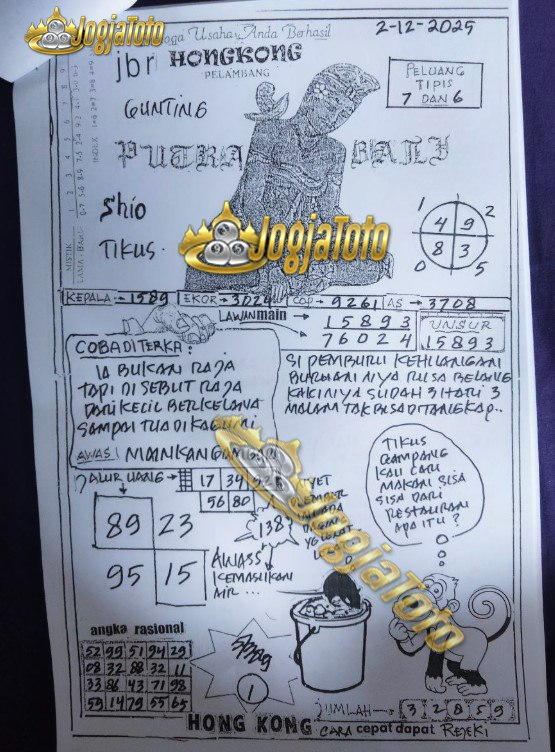 JogjaToto
Semoga Usaha Anda Berhasil
2-12-2025
jbr HONGKONG
PELAMBANG
PELUANG
TIPIS
7 DAN 6
GUNTING
PUTRA BALI
Shio
TIKUS.
JogjaToto
1 2
4 9
8 3
0 5
KEPALA → 1589 EKOR → 3024 COP → 9261 AS → 3708
LAWAN main → 15893
76024
UNSUR
15893
COBA DITERKA:
IA BUKAN RAJA
TAPI DI SEBUT RAJA
DARI KECIL BERKELANA
SAMPAI TUA DI KAGUMI
AWAS! MAINKAN
SI PEMBURU KEHILANGAN
BURUANNYA RUSA BELANG
KAKINYA SUDAH 3 HARI 3
MALAM TAK BISA DITANGKAP..
TIKUS
GAMPANG
KALI CARI
MAKAN SISA
SISA DARI
RESTAURAN
APA ITU?
JALUR UANG → 17 34 52
56 80
138
89 23
95 15
AWASS
KEMASUKAN
AIR...
JogjaToto
angka rasional
52 99 51 94 29
08 32 88 32 11
33 86 43 71 98
59 14 79 55 65
1
HONG KONG
JUMLAH → 3 2 8 5 9
CARA cepat dapat REJEKI